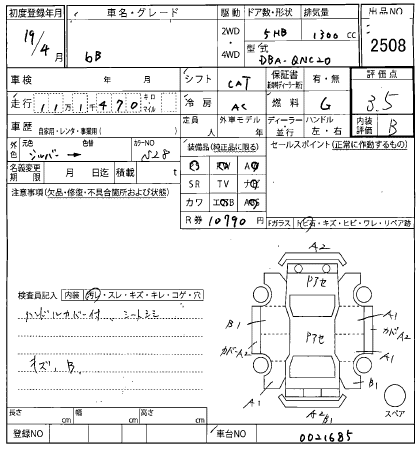 初度登録年月 車名・グレード 駆動 ドア数・形状 排気量 出品NO
19/4 bB 2WD・4WD 5HB 1300 cc 2508
型式 DBA-QNC20
車検 年 月 シフト CAT 保証書 有・無 評価点
走行 111470 キロ マイル 冷房 AC 燃料 G 3.5
車歴 自家用・レンタ・事業用( ) 定員 人 外車モデル 年 ディーラー 並行 ハンドル 左・右 内装評価 B
外色 元色 シルバー → 色替 カラーNO S28 装備品(純正品に限る) セールスポイント(正常に作動するもの)
名義変更期限 月 日迄 積載 t
PS PW AW
注意事項(欠品・修復・不具合箇所および状態) SR TV ナビ
カワ エSB ABS
R券 10790 円 Fガラス トビ石・キズ・ヒビ・ワレ・リペア跡
A2
アセ
検査員記入 内装 汚レ・スレ・キズ・キレ・コゲ・穴
ハンドルカバー付 シートシミ
B1 A1
カバーA2 アセ カドA2
キズ、B
A1 B1
A2 B1 スペア
長さ cm 幅 cm 高さ cm
登録NO 車台NO 0021685